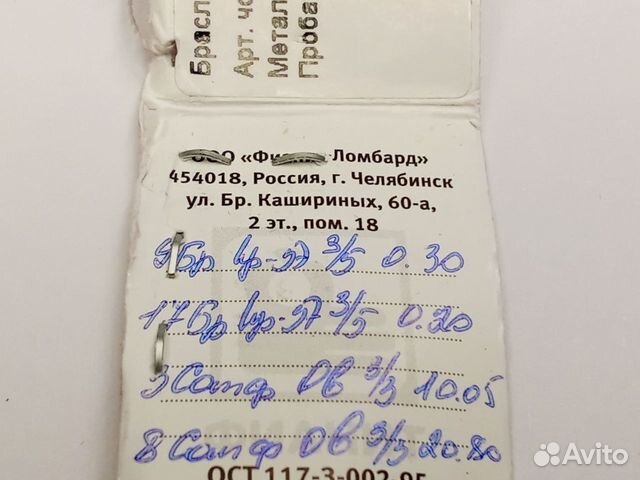 Брасл
Арт. чо
Метал
Проба
ООО «Ф Ломбард»
454018, Россия, г. Челябинск
ул. Бр. Кашириных, 60-а,
2 эт., пом. 18
9Бр кр-57 3/5 0.30
17Бр кр-57 3/5 0.20
3 Сапф Ов 3/3 10.05
8 Сапф Ов 3/3 20.80
ОСТ 117-3-002-95
Avito